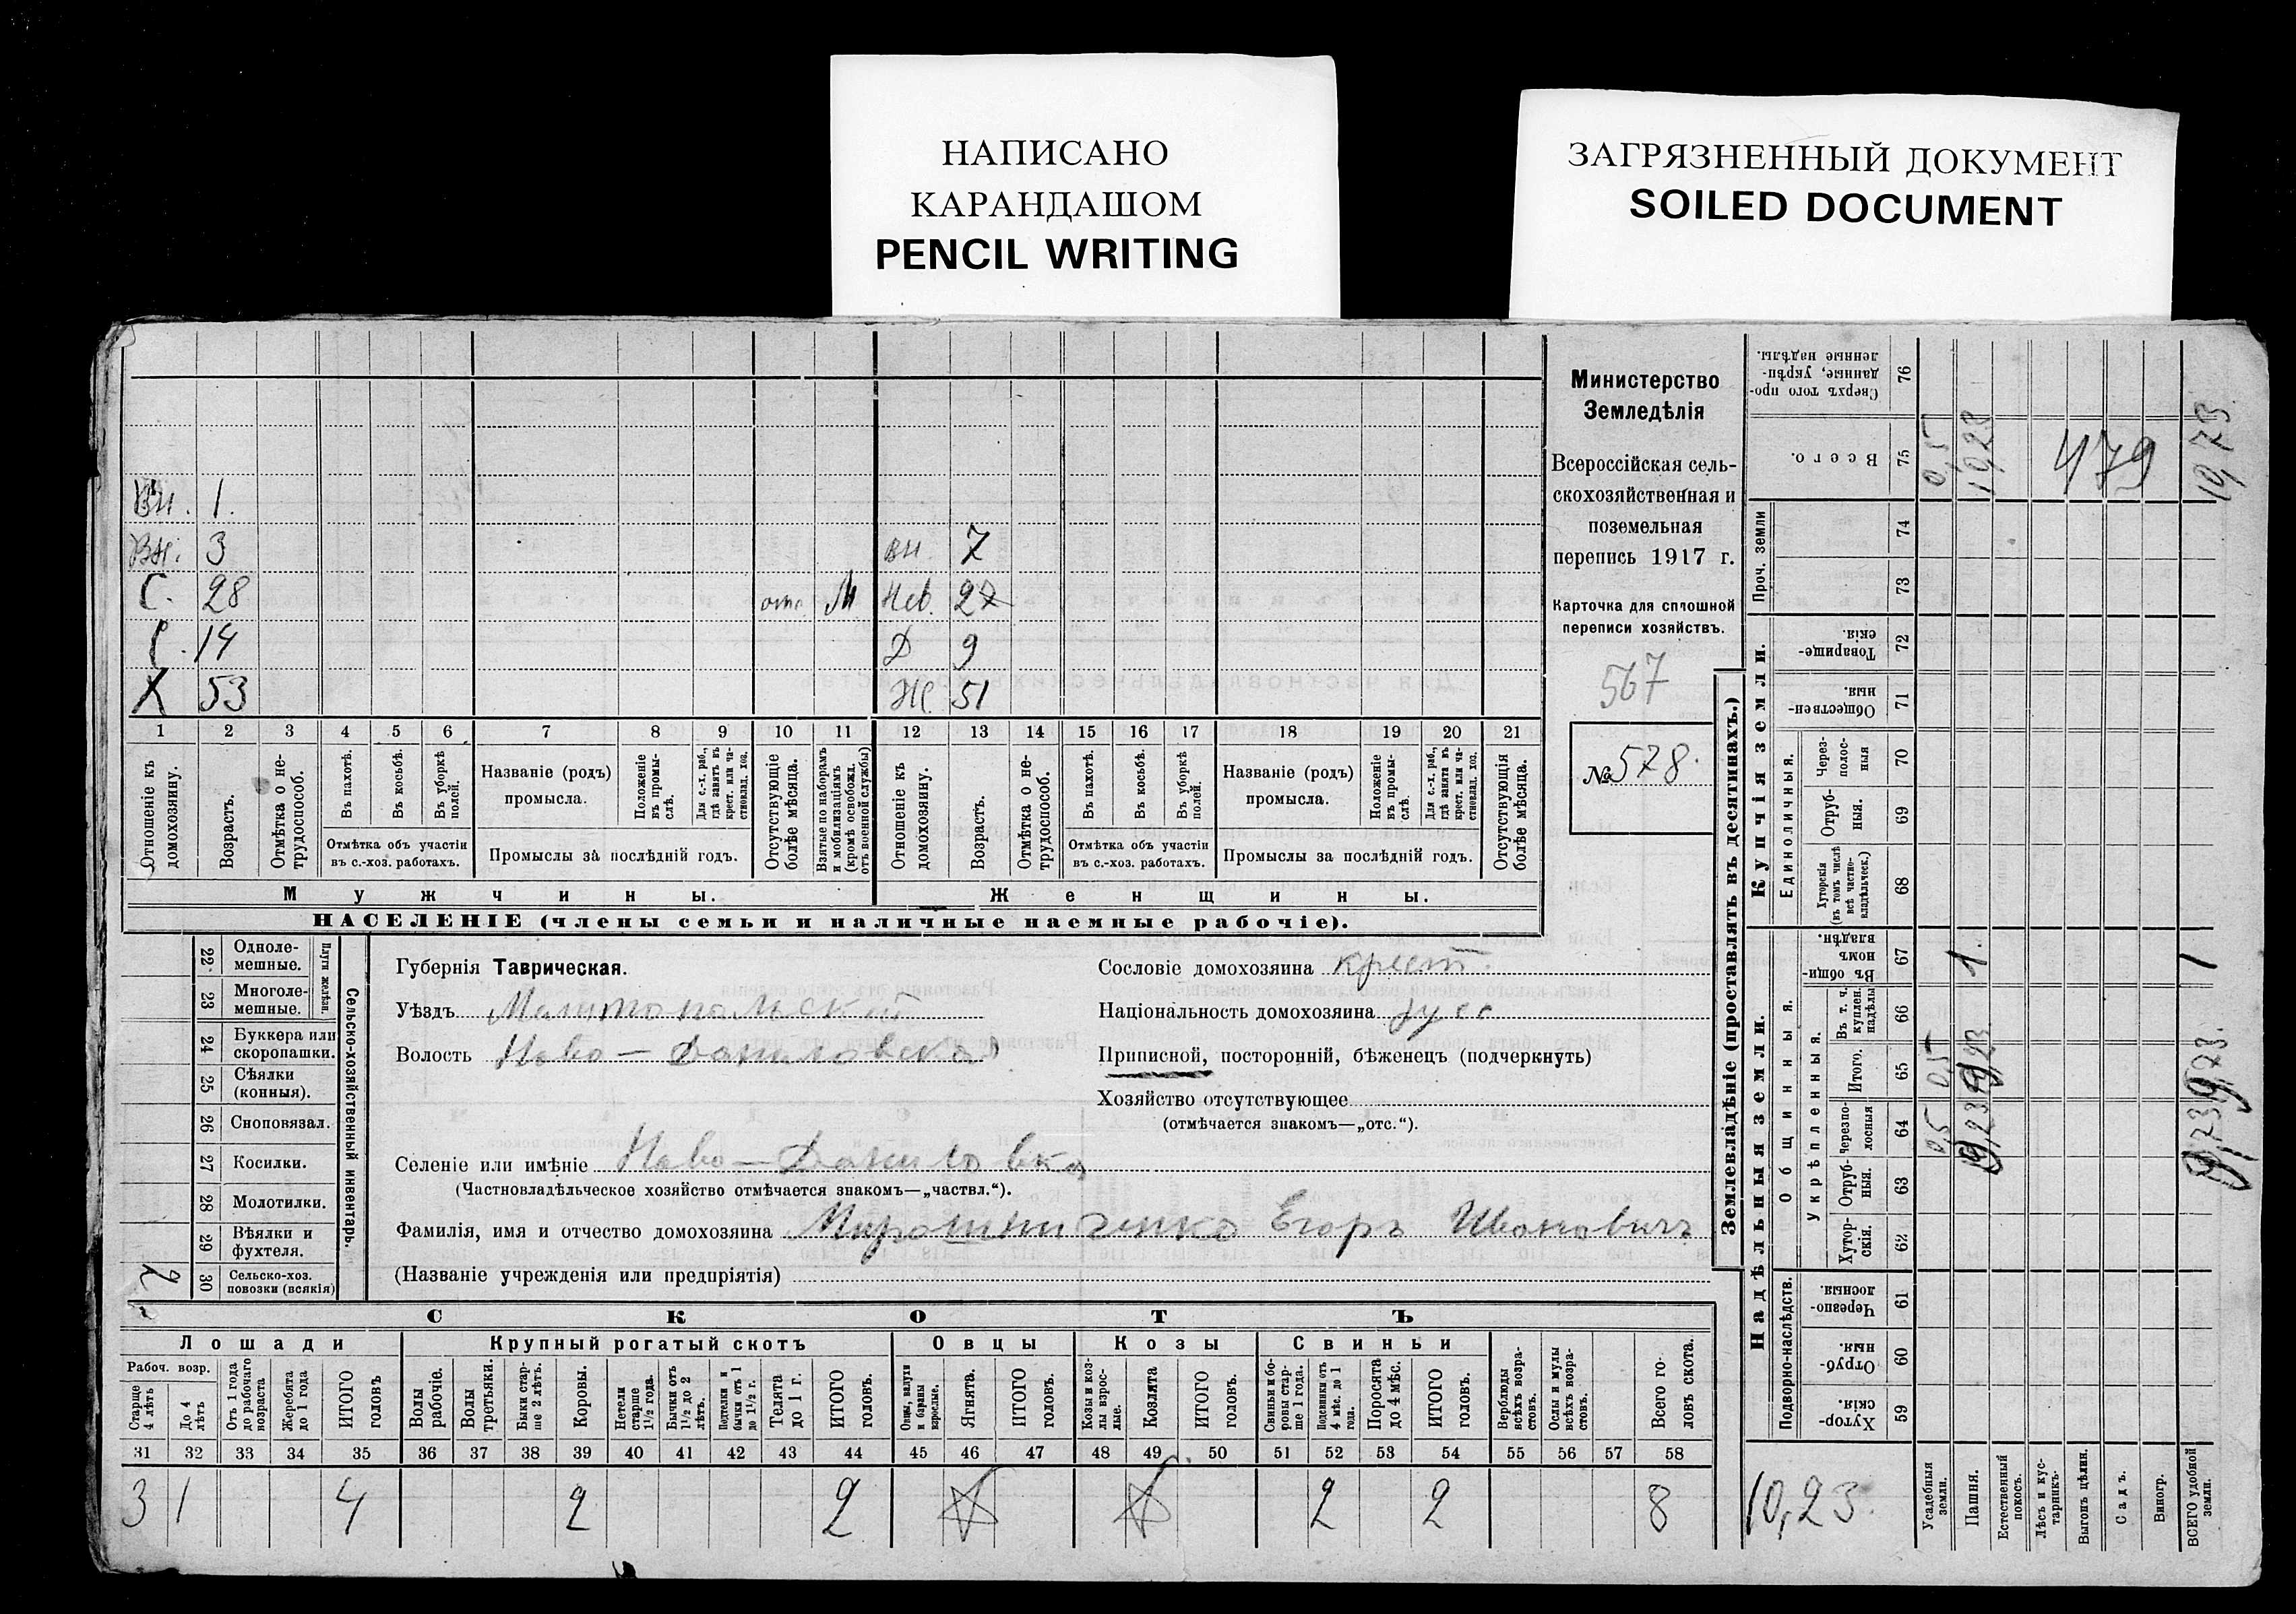 НАПИСАНО
КАРАНДАШОМ
PENCIL WRITING
ЗАГРЯЗНЕННЫЙ ДОКУМЕНТ
SOILED DOCUMENT
Вн. 1.
Вн. 3 вн. 7
С. 28 отс. М Нев. 27
С. 14 Д 9
Х 53 Ж. 51
1 2 3 4 5 6 7 8 9 10 11 12 13 14 15 16 17 18 19 20 21
Отношеніе къ домохозяину.
Возрастъ.
Отмѣтка о нетрудоспособ.
Въ пахотѣ.
Въ косьбѣ.
Въ уборкѣ полей.
Отмѣтка объ участіи
въ с.-хоз. работахъ.
Названіе (родъ)
промысла.
Положеніе въ промыслѣ.
Для с.-х. раб., гдѣ занятъ въ крест. или частновлад. хоз.
Промыслы за послѣдній годъ.
Отсутствующіе болѣе мѣсяца.
Взятые по наборамъ и мобилизаціямъ (кромѣ освобожд. отъ военной службы)
Отношеніе къ домохозяину.
Возрастъ.
Отмѣтка о нетрудоспособ.
Въ пахотѣ.
Въ косьбѣ.
Въ уборкѣ полей.
Отмѣтка объ участіи
въ с.-хоз. работахъ.
Названіе (родъ)
промысла.
Положеніе въ промыслѣ.
Для с.-х. раб., гдѣ занятъ въ крест. или частновлад. хоз.
Промыслы за послѣдній годъ.
Отсутствующія болѣе мѣсяца.
Мужчины. Женщины.
НАСЕЛЕНІЕ (члены семьи и наличные наемные рабочіе).
Министерство
Земледѣлія
Всероссійская сель-
скохозяйственная и
поземельная
перепись 1917 г.
Карточка для сплошной
переписи хозяйствъ.
567
№ 578.
22 Однолемешные.
23 Многолемешные.
Плуги желѣзн.
24 Буккера или скоропашки.
25 Сѣялки (конныя).
26 Сноповязал.
27 Косилки.
28 Молотилки.
29 Вѣялки и фухтеля.
30 Сельско-хоз. повозки (всякія)
2
Сельско-хозяйственный инвентарь.
Губернія Таврическая.
Уѣздъ Мелитопольскій
Волость Ново-Даниловская
Сословіе домохозяина крест.
Національность домохозяина русс
Приписной, посторонній, бѣженецъ (подчеркнуть)
Хозяйство отсутствующее
(отмѣчается знакомъ—„отс.“).
Селеніе или имѣніе Ново-Даниловка
(Частновладѣльческое хозяйство отмѣчается знакомъ—„частвл.“).
Фамилія, имя и отчество домохозяина Мирошниченко Егоръ Ивановичъ
(Названіе учрежденія или предпріятія)
СКОТЪ
Лошади Крупный рогатый скотъ Овцы Козы Свиньи
Рабоч. возр.
Старше 4 лѣтъ
До 4 лѣтъ
Отъ 1 года до рабочаго возраста
Жеребята до 1 года
ИТОГО головъ
Волы рабочіе.
Волы третьяки.
Быки старше 2 лѣтъ.
Коровы.
Нетели старше 1½ года.
Бычки отъ 1½ до 2 лѣтъ.
Подтелки и бычки отъ 1 до 1½ г.
Телята до 1 г.
ИТОГО головъ.
Овцы, валухи и бараны взрослые.
Ягнята.
ИТОГО головъ.
Козы и козлы взрослые.
Козлята
ИТОГО головъ.
Свиньи и боровы старше 1 года.
Подсвинки отъ 4 мѣс. до 1 года.
Поросята до 4 мѣс.
ИТОГО головъ.
Верблюды всѣхъ возрастовъ.
Ослы и мулы всѣхъ возрастовъ.
Всего головъ скота.
31 32 33 34 35 36 37 38 39 40 41 42 43 44 45 46 47 48 49 50 51 52 53 54 55 56 57 58
3 1 4 2 2 2 2 8
Землевладѣніе (проставлять въ десятинахъ.)
Купчія земли.
Надѣльныя земли.
Сверхъ того проданные, укрѣпленные надѣлы. 76
Всего. 75 0,5 10,23 479 10,73
Проч. земли 74
73
Товарищескія. 72
Общественныя. 71
Единоличныя.
Черезполосныя 70
Отрубныя. 69
Хуторскія (въ томъ числѣ всѣ частновладѣльческ.) 68
Общинныя.
Въ общиномъ владѣн. 67 1. 1
Укрѣпленныя.
Въ т. ч. куплен. надѣлы 66
Итого. 65 0,5 9,23 9,73.
Черезполосныя 64 0,5 9,23 9,73
Отрубныя. 63
Хуторскія. 62
Подворно-наслѣдств.
Черезполосныя 61
Отрубныя. 60
Хуторскія. 59
10,23.
Усадебныя земли.
Пашня.
Естественный покосъ.
Лѣсъ и кустарникъ.
Выгонъ цѣлин.
Садъ.
Виногр.
ВСЕГО удобной земли.